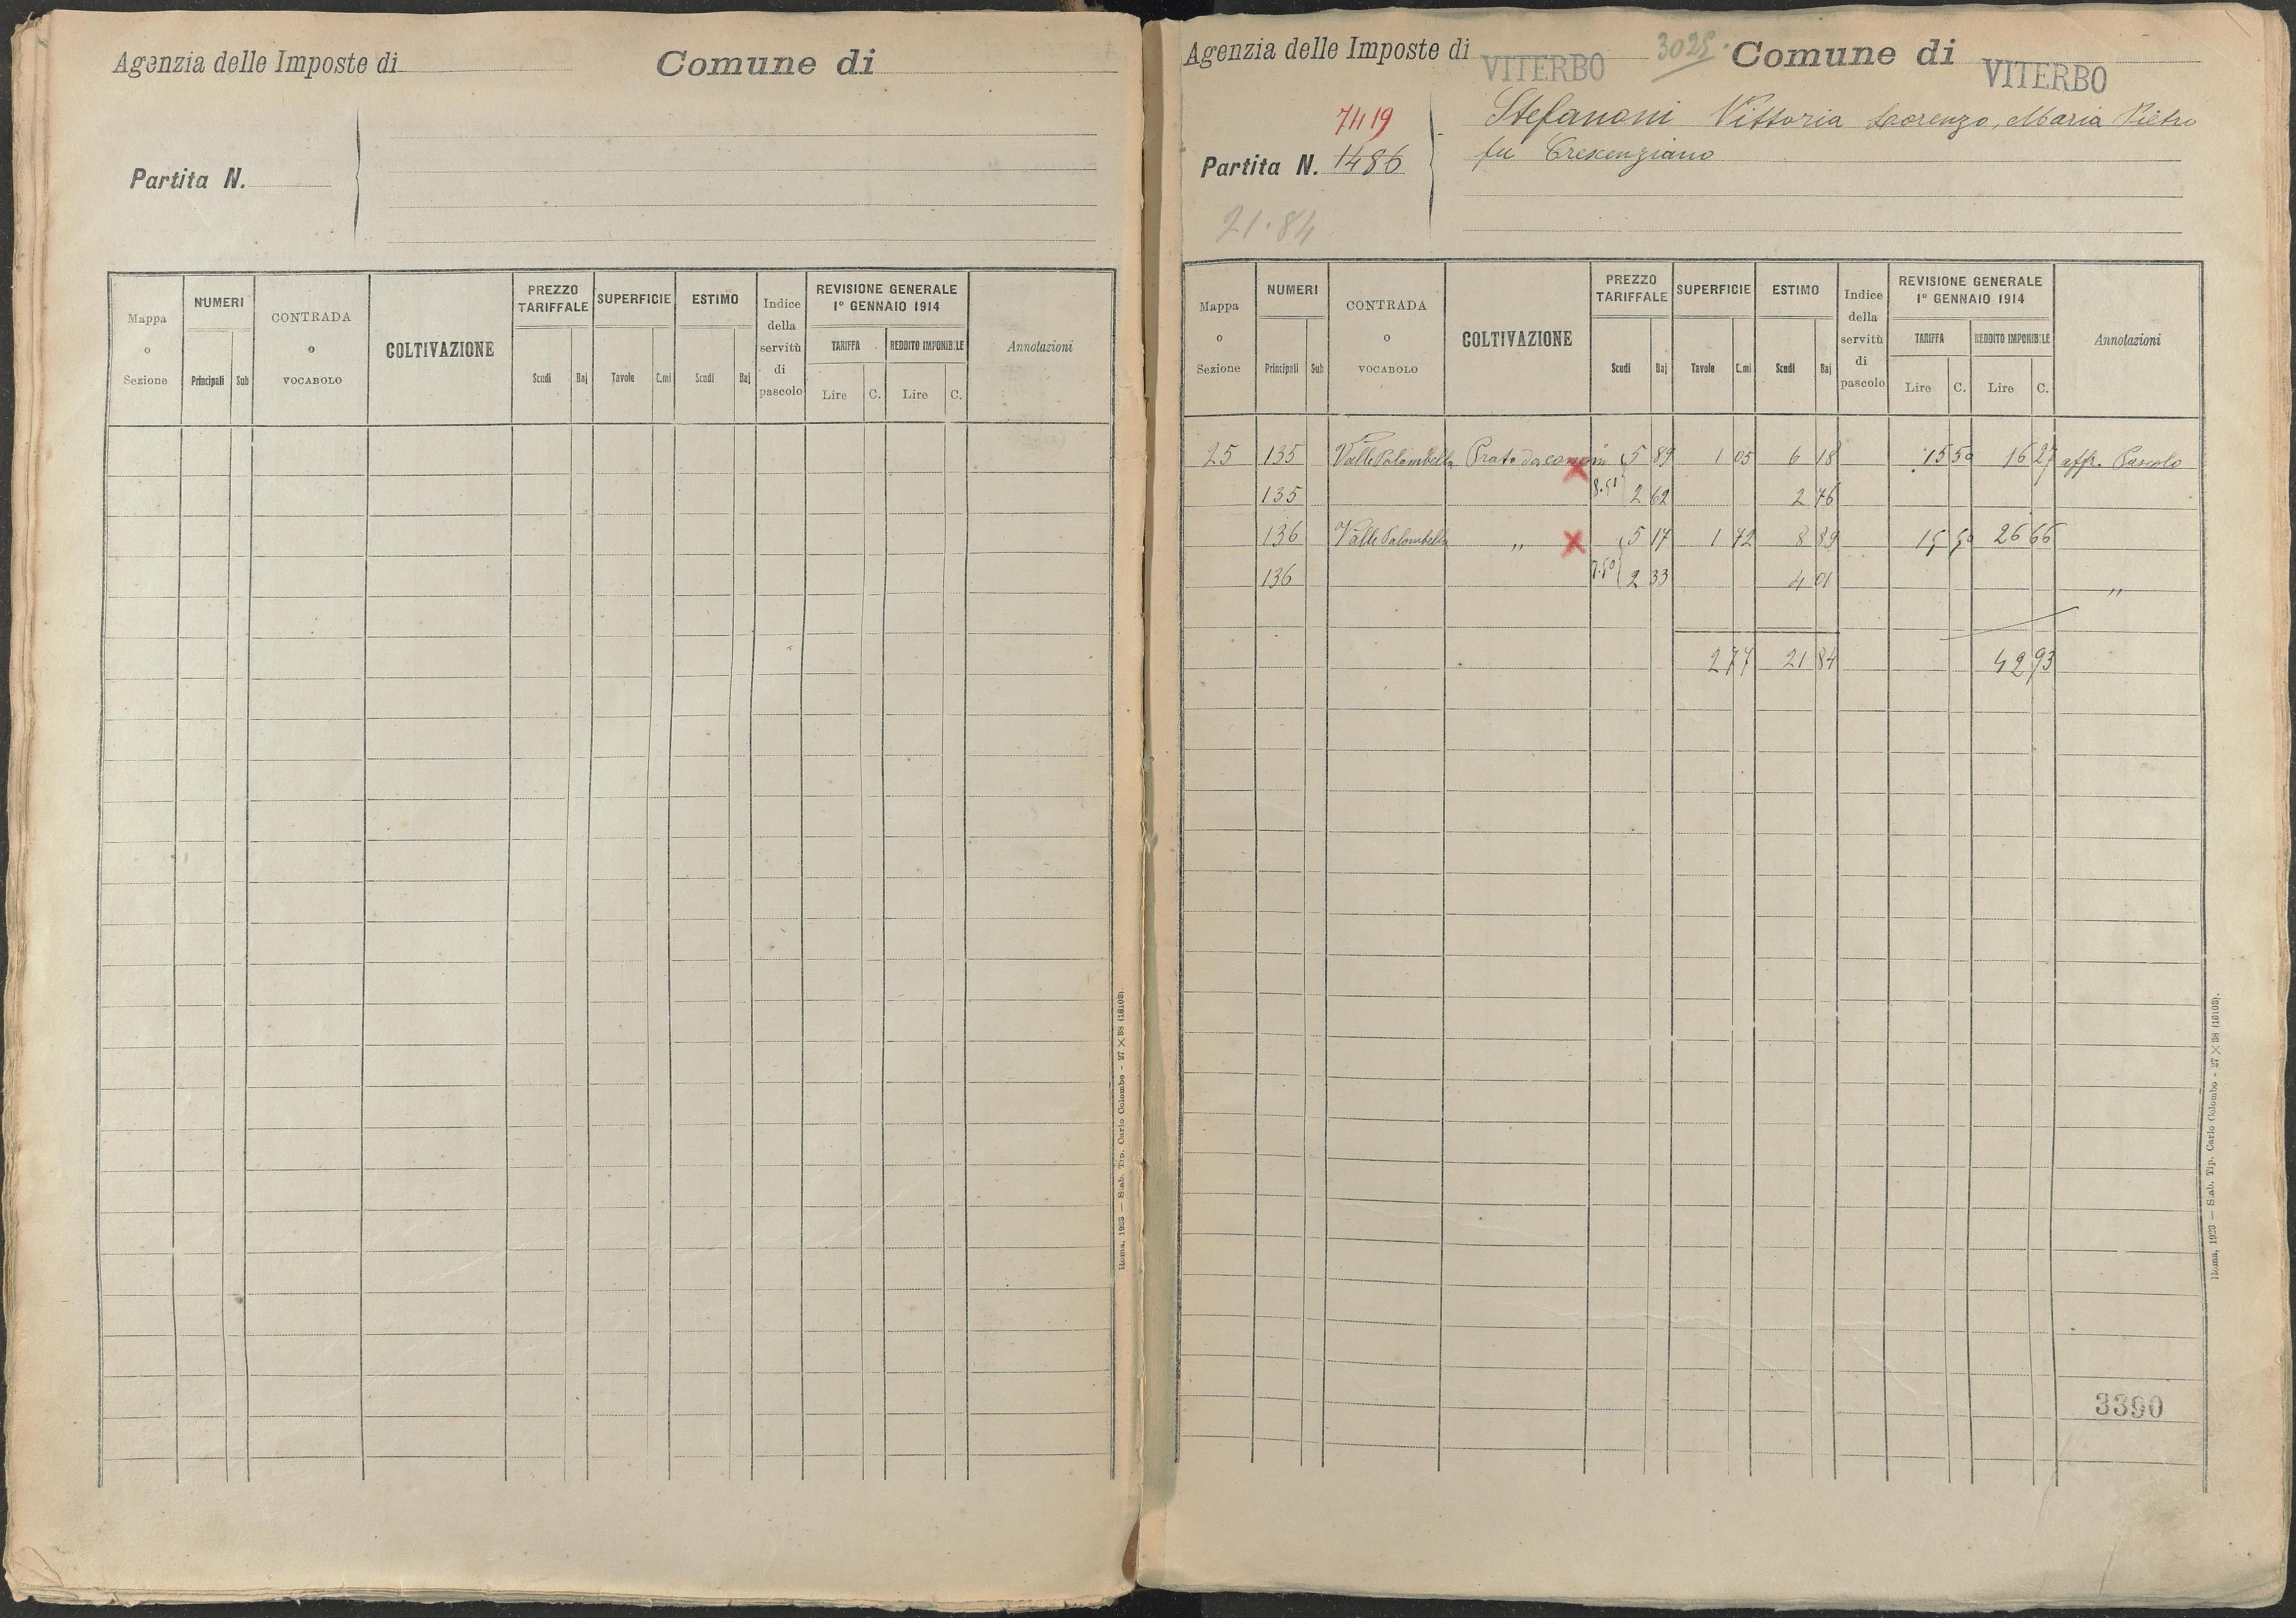 Agenzia delle Imposte di
Comune di
Partita N.
Mappa o Sezione
NUMERI
Principali Sub
CONTRADA o VOCABOLO
COLTIVAZIONE
PREZZO TARIFFALE
Scudi Baj
SUPERFICIE
Tavole C.mi
ESTIMO
Scudi Baj
Indice della servitù di pascolo
REVISIONE GENERALE 1° GENNAIO 1914
TARIFFA
Lire C.
REDDITO IMPONIBILE
Lire C.
Annotazioni
Roma, 1923 — Stab. Tip. Carlo Colombo - 27 × 38 (16103).
Agenzia delle Imposte di VITERBO 3025. Comune di VITERBO
7419
Partita N. 1486
21.84
Stefanoni Vittoria Lorenzo, Maria Pietro
fu Crescenziano
Mappa o Sezione
NUMERI
Principali Sub
CONTRADA o VOCABOLO
COLTIVAZIONE
PREZZO TARIFFALE
Scudi Baj
SUPERFICIE
Tavole C.mi
ESTIMO
Scudi Baj
Indice della servitù di pascolo
REVISIONE GENERALE 1° GENNAIO 1914
TARIFFA
Lire C.
REDDITO IMPONIBILE
Lire C.
Annotazioni
25 135 Valle Palombella Prato da 5 89 1 05 6 18 15 50 16 27 affr. Pascolo
135 8.51 2 62 2 76
136 Valle Palombella „ 5 17 1 72 8 89 15 50 26 66
136 7.50 2 33 4 01 „
2 77 21 84 42 93
3390
Roma, 1923 — Stab. Tip. Carlo Colombo - 27 × 38 (16103).